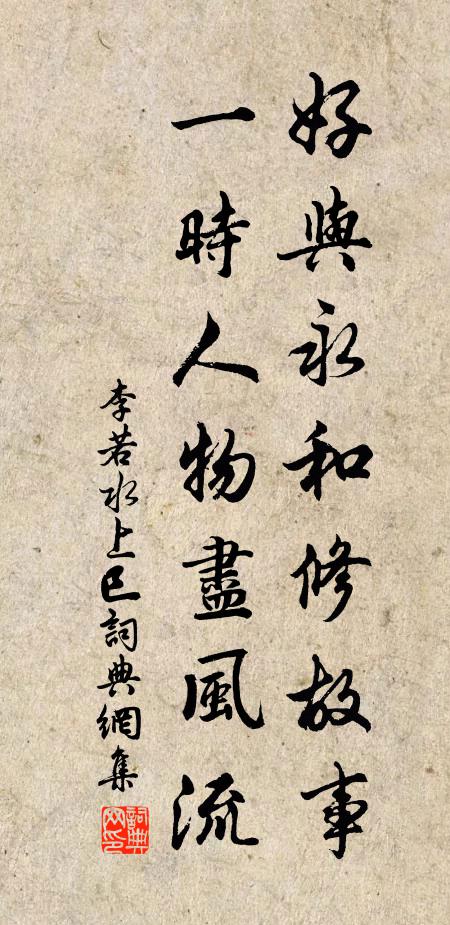 好與永和修故事
一時人物盡風流
李若水上巳詞典網集
詞典網印